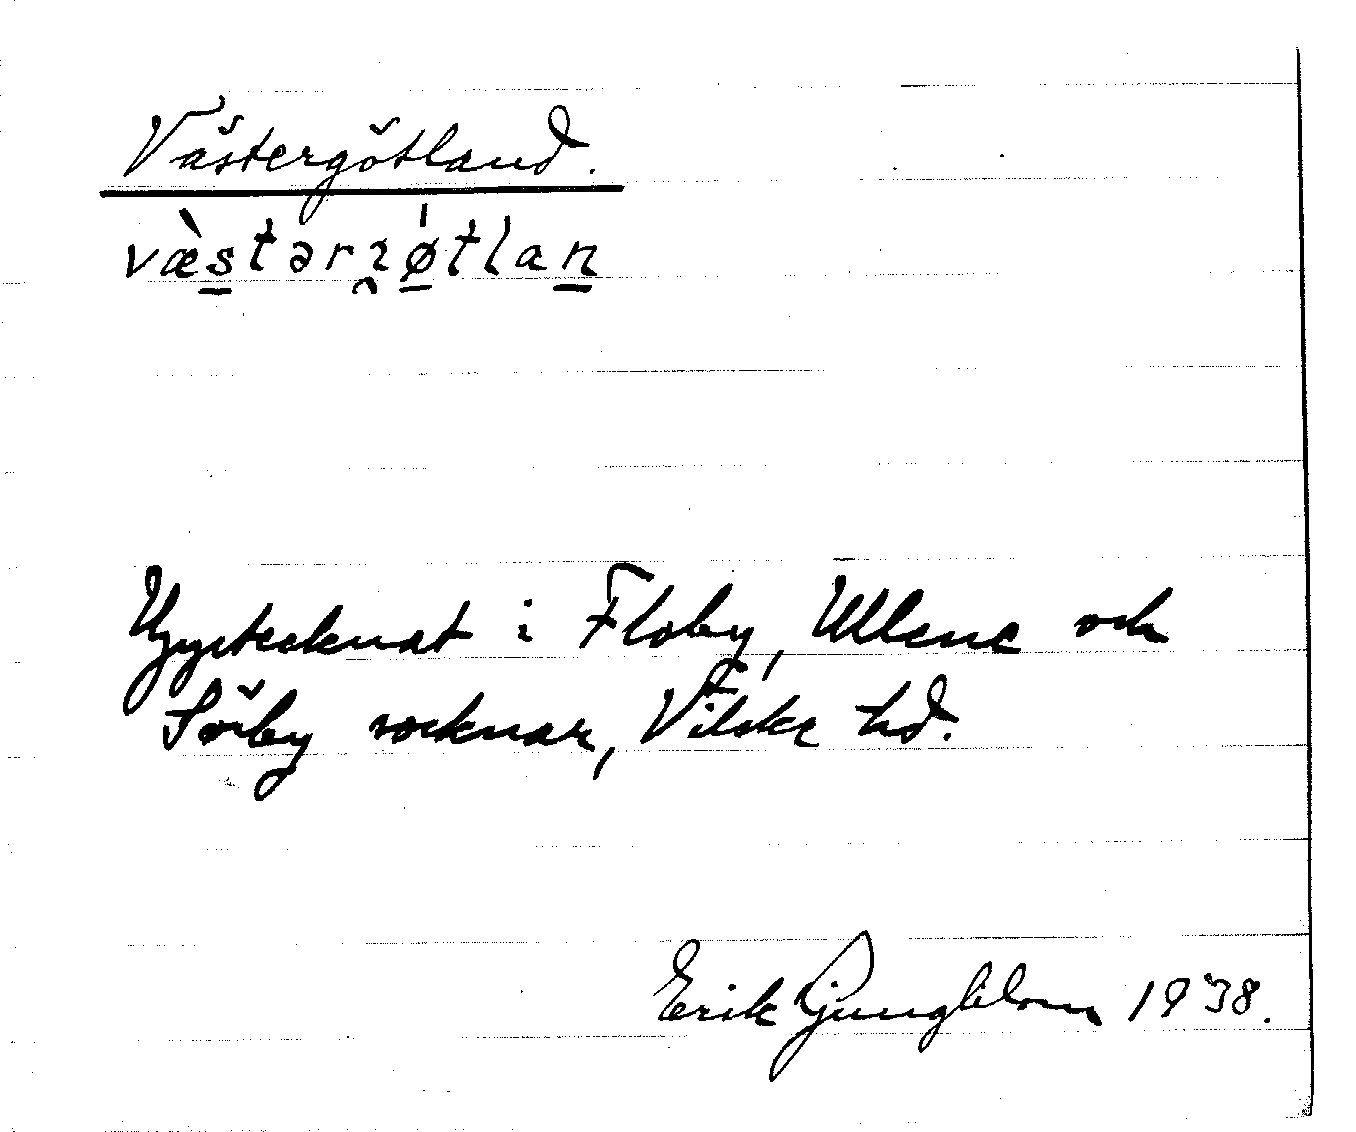 Västergötland.
væ̀s̲tərʒǿ̲tlan̲
Upptecknat i Floby, Ullene och
Sörby socknar, Vilske hd.
Erik Ljungblom 1938.